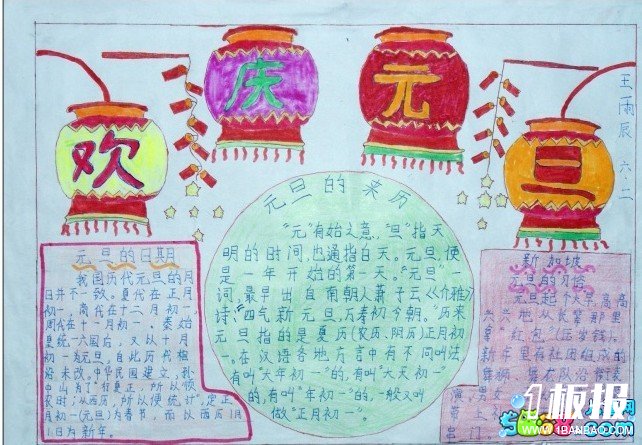 欢
庆
元
旦
王雨辰
六.二
元旦的来历
"元"有始之意,"旦"指天
明的时间,也通指白天。元旦,便
是一年开始的第一天。"元旦"一
词,最早出自南朝人萧子云《介雅》
诗:"四气新元旦,万寿初今朝。"历来
元旦指的是夏历(农历、阴历)正月初
一。在汉语各地方言中有不同叫法,
有叫"大年初一"的,有叫"大天初一"
的,有叫"年初一"的,一般又叫
做"正月初一"。
元旦的日期
我国历代元旦的月
日并不一致。夏代在正月
初一,商代在十二月初一,
周代在十一月初一,秦始
皇统一六国后,又以十月
初一为元旦,自此历代相
沿未改。中华民国建立,孙
中山为了"行夏正,所以顺
农时;从西历,所以便统计",定正
月初一(元旦)为春节,而以西历1月
1日为新年。
新加坡
元旦的习俗
元旦起个大早,高高
兴兴地从长辈那里
拿"红包"(压岁钱)。
新年里有社团组成的
舞狮、舞龙队沿街表
演,男女
1板报
1BANBAO.COM